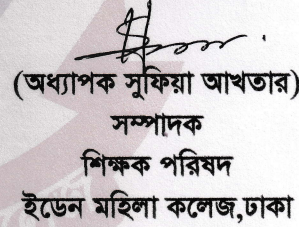 (অধ্যাপক সুফিয়া আখতার)
সম্পাদক
শিক্ষক পরিষদ
ইডেন মহিলা কলেজ,ঢাকা